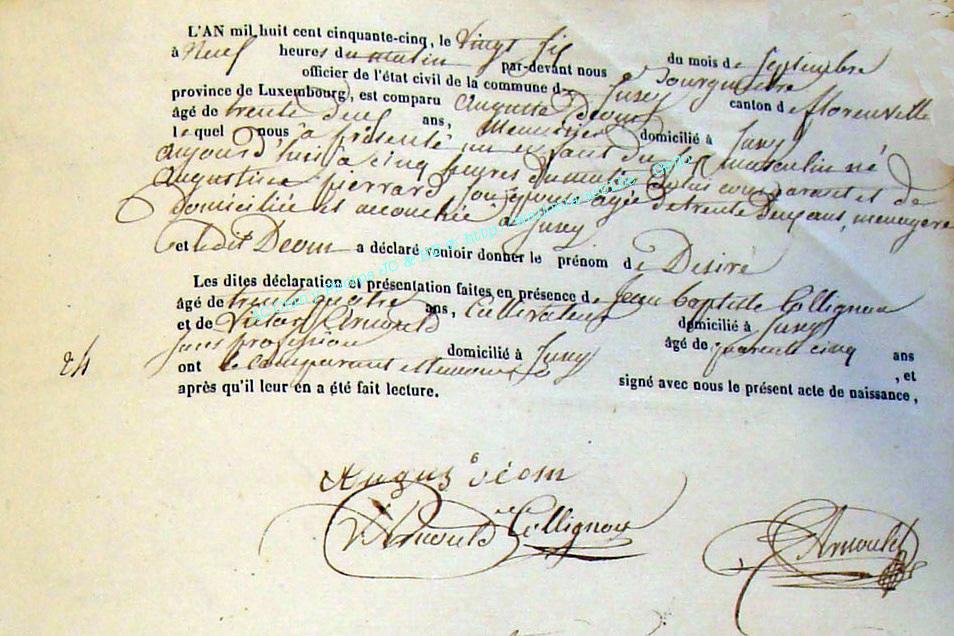 L'AN mil huit cent cinquante-cinq, le Vingt six du mois de Septembre
à Neuf heures du matin par-devant nous Bourgmestre
officier de l'état civil de la commune de Jusey canton de florenville
province de Luxembourg, est comparu Auguste Déom
âgé de trente neuf ans, Menuisier domicilié à Jusey
lequel nous a présenté un enfant du sexe masculin né
aujourd'hui à cinq heures du matin de lui comparant et de
Augustine pierrard son épouse agée de trente deux ans, menagère
domiciliée et accouchée à Jusey
et ledit Deom a déclaré vouloir donner le prénom de Désiré
Les dites déclaration et présentation faites en présence de Jean baptiste Collignon
âgé de trente quatre ans, Cultivateur domicilié à Jusey
et de Victor Arnould âgé de quarante cinq ans
sans profession domicilié à Jusey , et
24
ont le comparant et témoins signé avec nous le présent acte de naissance,
après qu'il leur en a été fait lecture.
August déom
V Arnould Collignon
Arnould